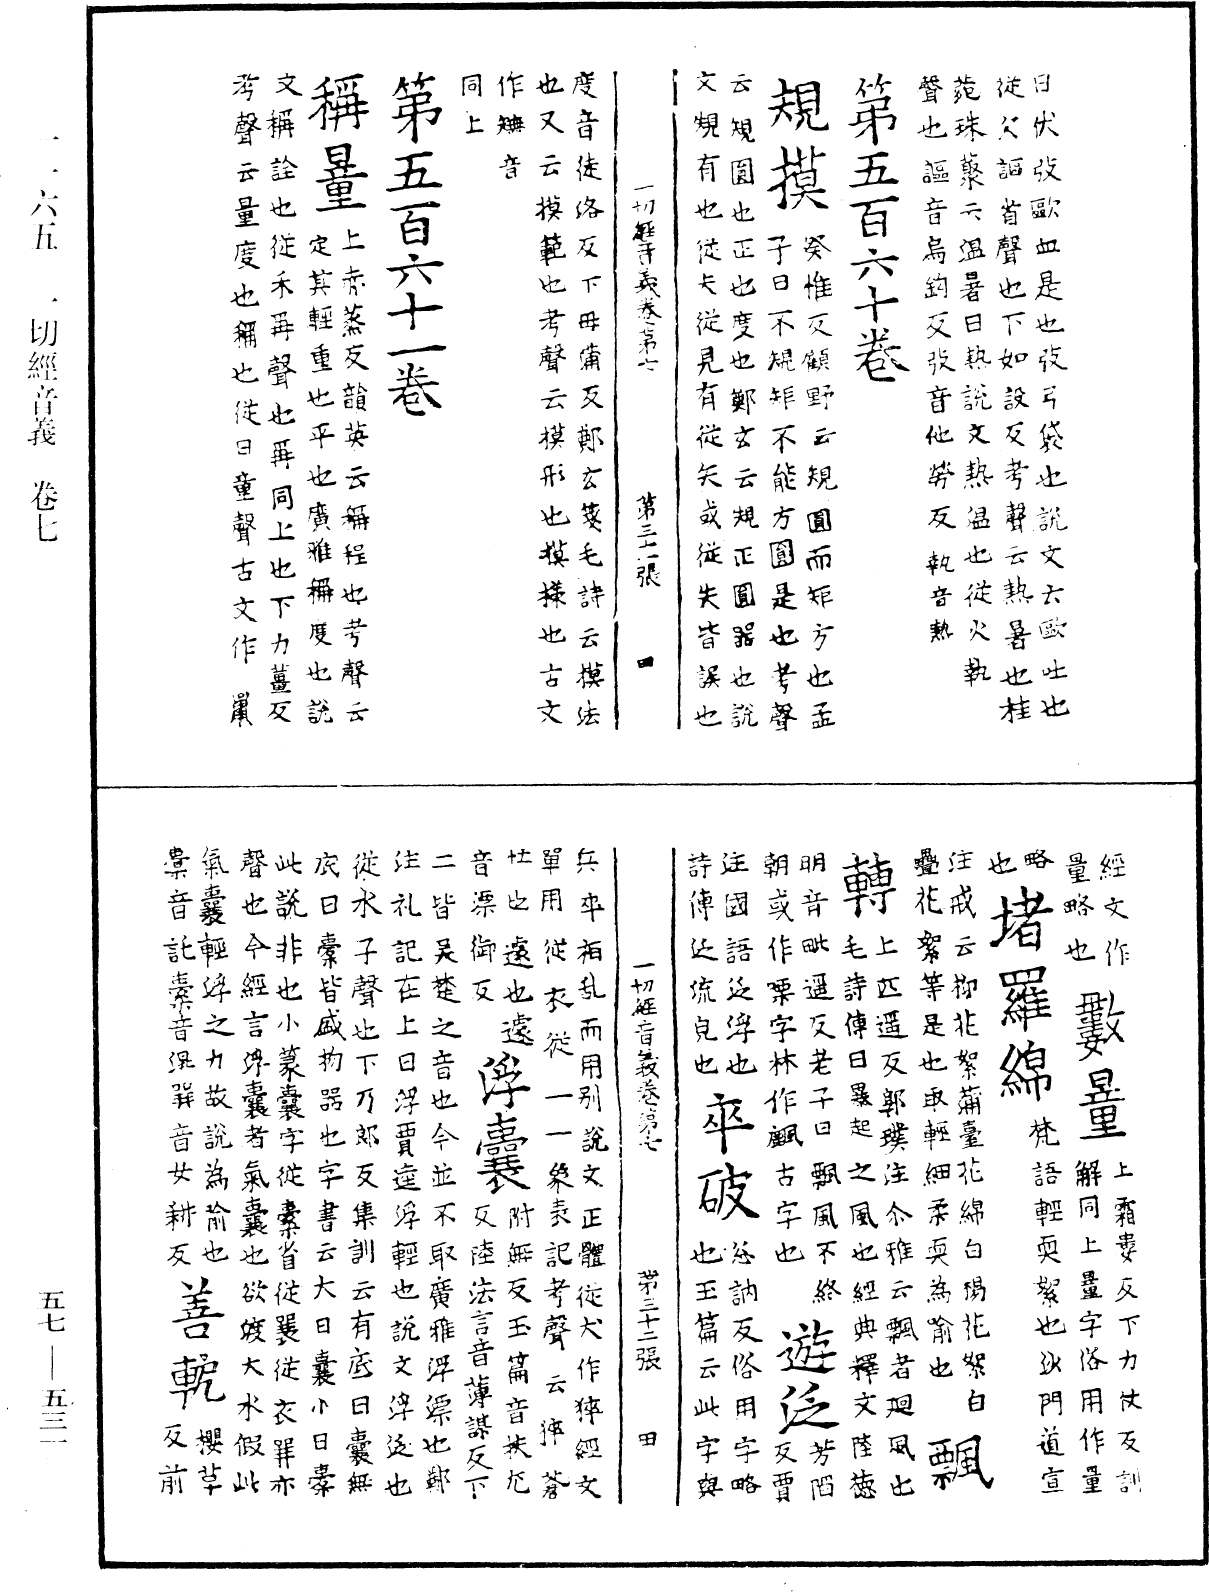 一一六五　一切經音義　卷七
五七—五三一
曰伏弢歐血是也弢弓袋也說文云歐吐也
從欠謳省聲也下如設反考聲云熱暑也桂
菀珠藂云温暑曰熱說文熱温也從火執
聲也謳音烏鉤反弢音他勞反執音熱
第五百六十卷
規摸癸惟反顧野云規圓而矩方也孟
子曰不規矩不能方圓是也考聲
云規圓也正也度也鄭玄云規正圓器也說
文規有也從夫從見有從矢或從失皆誤也
一切經音義卷第七　第三十一張　田
度音徒洛反下母蒲反鄭玄箋毛詩云摸法
也又云摸範也考聲云摸形也摸㨾也古文
作橅音
同上
第五百六十一卷
稱量上赤蒸反韻英云稱程也考聲云
定其輕重也平也廣雅稱度也說
文稱詮也從禾爯聲也爯同上也下力薑反
考聲云量度也稱也從曰童聲古文作𣊫
經文作
量略也數量上霜婁反下力仗反訓
解同上量字俗用作量
略
也堵羅綿梵語輕耎絮也沙門道宣
注戒云柳花絮蒲臺花綿白楊花絮白
疊花絮等是也取輕細柔耎為喻也飄
轉上匹遥反郭璞注尒雅云飄者廻風也
毛詩傳曰暴起之風也經典釋文陸德
明音毗遥反老子曰飄風不終
朝或作票字林作飆古字也遊泛芳陷
反賈
注國語泛浮也
詩傳泛流皃也卒破怱訥反俗用字略
也玉篇云此字與
一切經音義卷第七　第三十二張　田
兵卒相乱而用别說文正體從犬作猝經文
單用從衣從一一䘚衣記考聲云猝蒼
忙也遽也遽附無反玉篇音扶尤
音渠御反浮囊反陸法言音薄謀反下
二皆吴楚之音也今並不取廣雅浮漂也鄭
注礼記在上曰浮賈逵浮輕也說文浮泛也
從水子聲也下乃郎反集訓云有底曰囊無
底曰橐皆盛物器也字書云大曰囊小曰橐
此說非也小篆囊字從橐省從㐮從衣㗊亦
聲也今經言浮囊者氣囊也欲渡大水假此
氣囊輕浮之力故說為喻也
橐音託橐音混㗊音女耕反善軶櫻草
反前